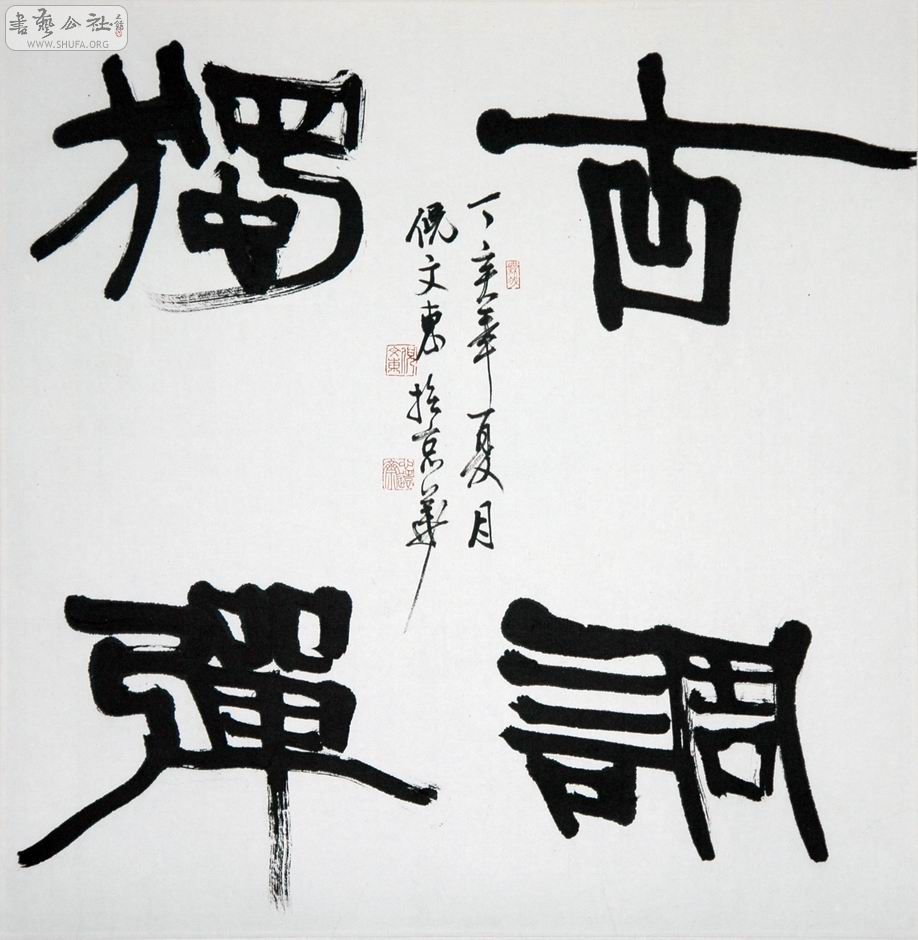 古調
獨彈
丁亥年夏月
倪文東於京華
倪文東
書藝公社
WWW.SHUFA.ORG